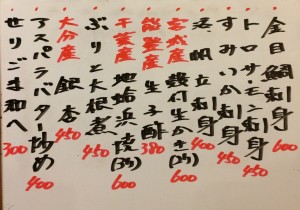 金目鯛刺身 600
トロサーモン刺身 450
すみいか刺身 450
活帆立刺身 400
宮城産 殻付生かき(2ヶ) 600
能登産 生子酢 380
千葉産 地蛤浜焼(3ヶ) 600
ぶりと大根煮 450
大分産 銀杏 450
アスパラバター炒め 400
せりごま和へ 300